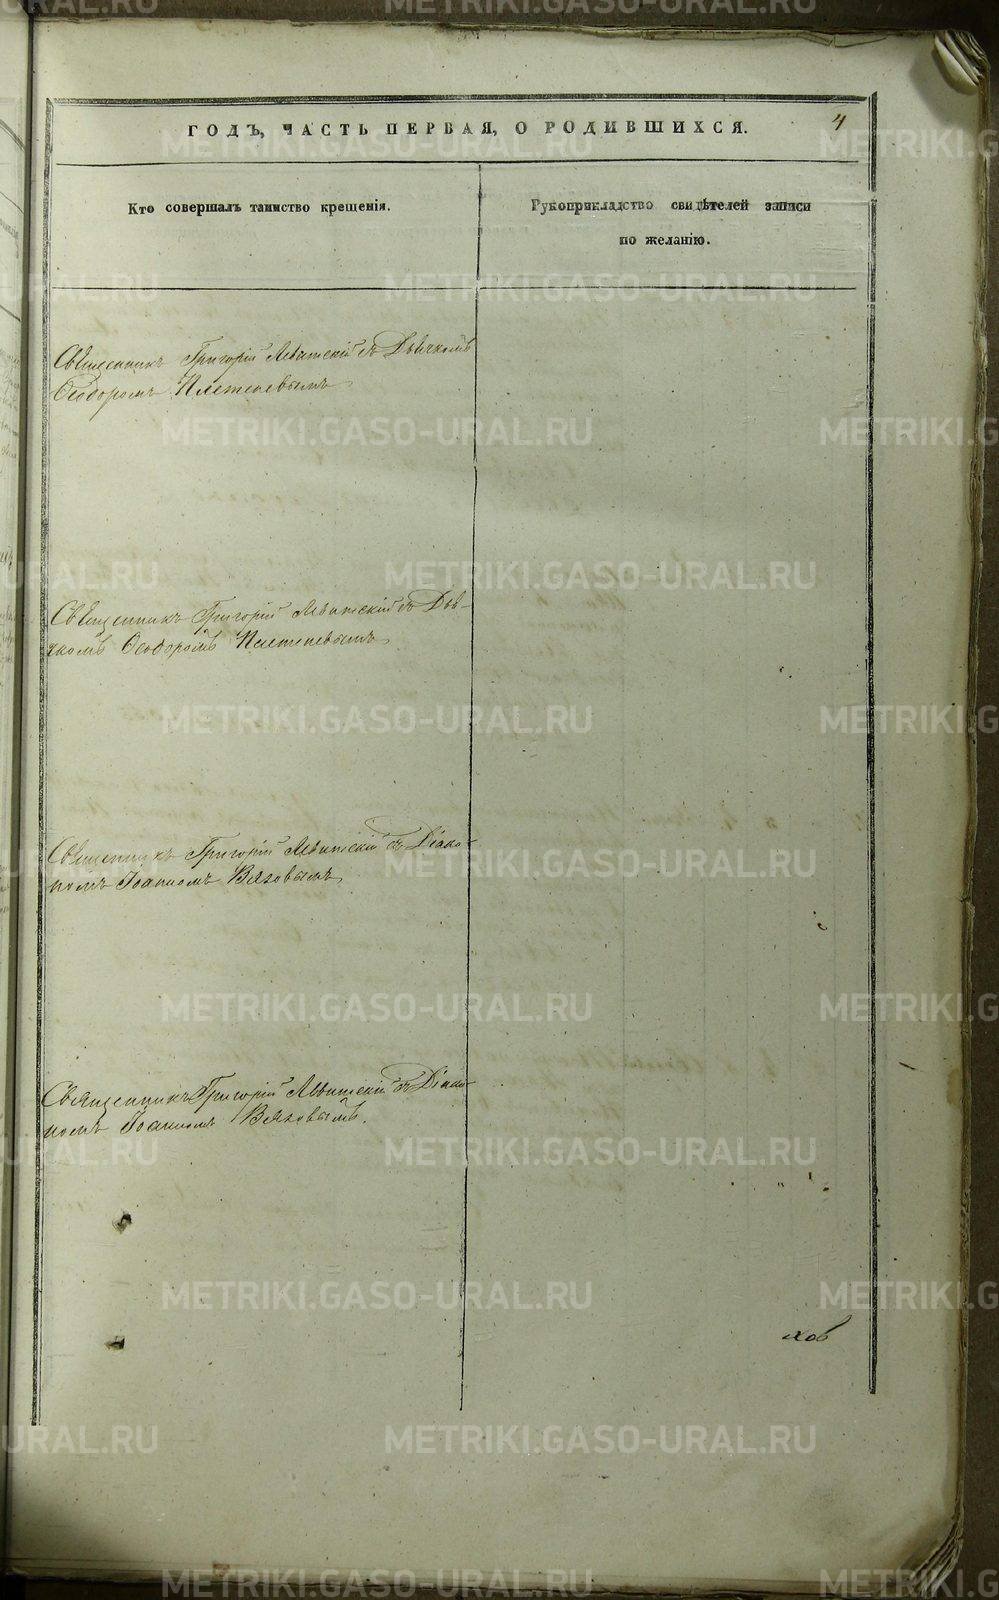 4
ГОДЪ, ЧАСТЬ ПЕРВАЯ, О РОДИВШИХСЯ.
Кто совершалъ таинство крещенія.
Рукоприкладство свидѣтелей записи
по желанію.
Священникъ Григорій Левитскій съ Дьячкомъ
Ѳеодоромъ Плетеневымъ
Священникъ Григорій Левитскій съ Дья-
чкомъ Ѳеодоромъ Плетеневымъ
Священникъ Григорій Левитскій съ Діако-
номъ Іоанномъ Вяховымъ
Священникъ Григорій Левитскій съ Діако-
номъ Іоанномъ Вяховымъ.
хов
METRIKI.GASO-URAL.RU